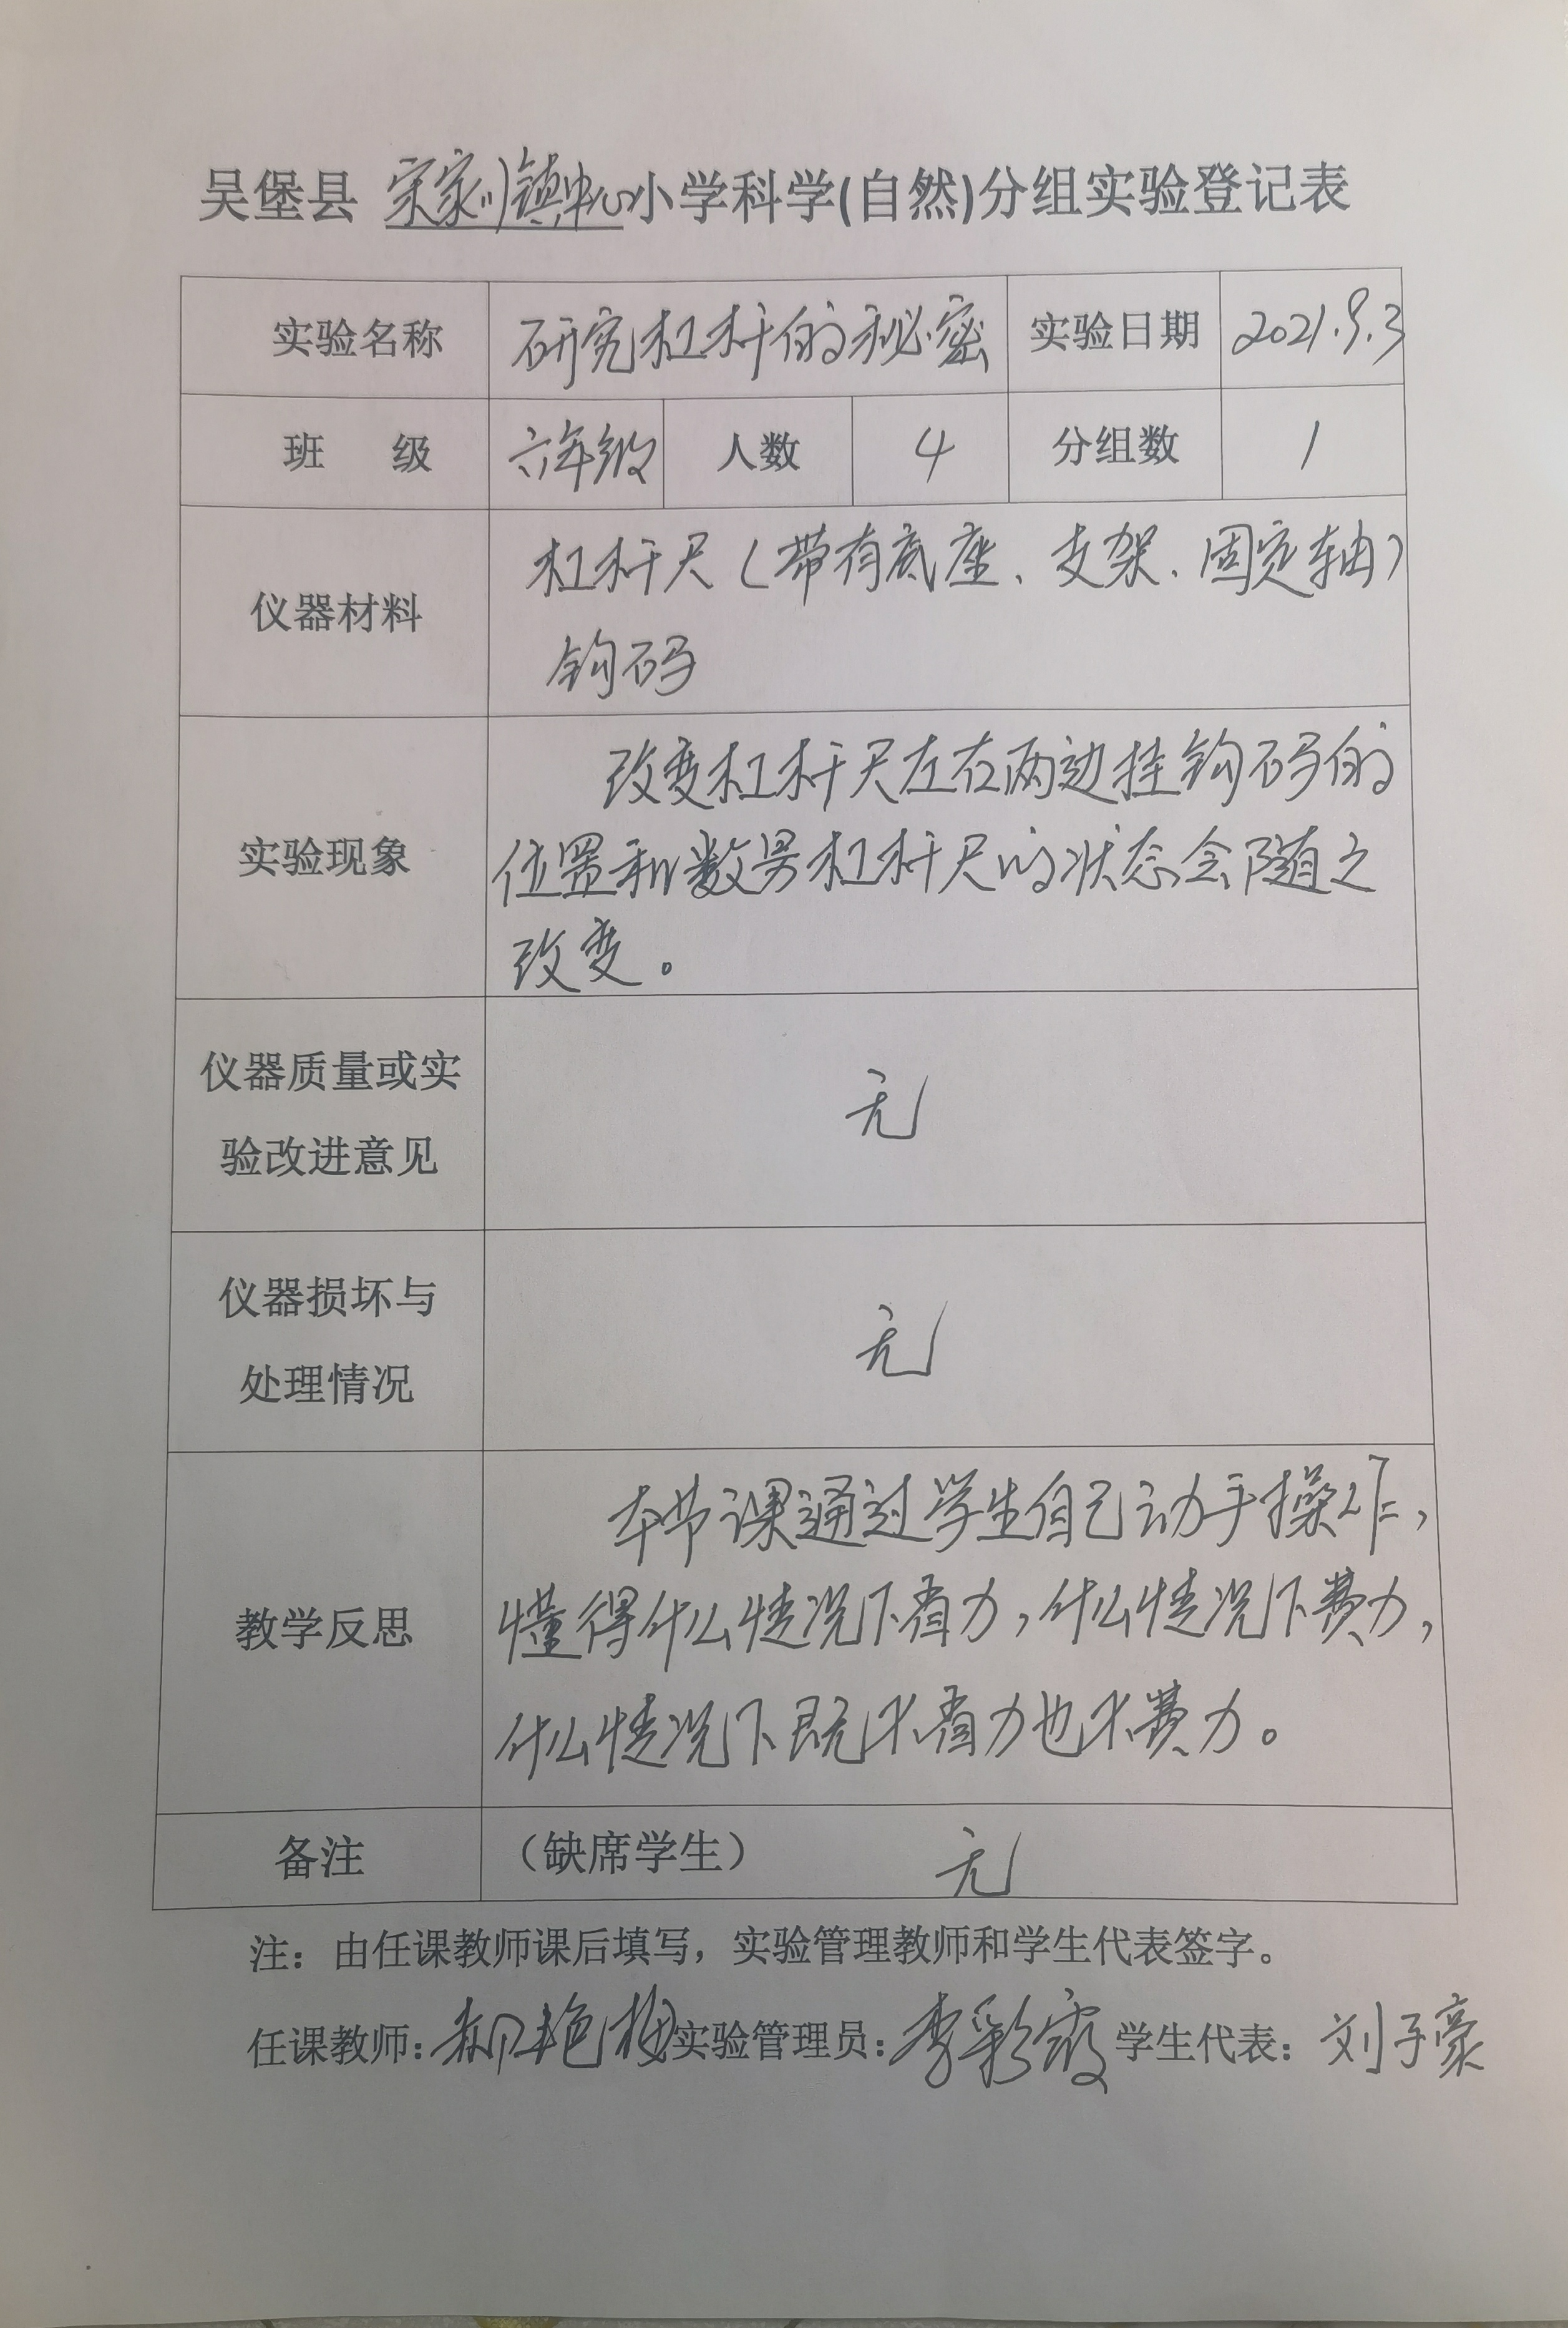 吴堡县 宋家川镇中心小学科学(自然)分组实验登记表
实验名称 研究杠杆的秘密 实验日期 2021.9.3
班 级 六年级 人数 4 分组数 1
仪器材料
杠杆尺(带有底座、支架、固定轴)
钩码
实验现象
改变杠杆尺左右两边挂钩码的
位置和数另杠杆尺的状态会随之
改变。
仪器质量或实
验改进意见
无
仪器损坏与
处理情况
无
教学反思
本节课通过学生自己动手操作,
懂得什么情况下省力,什么情况下费力,
什么情况下既不省力也不费力。
备注 (缺席学生) 无
注：由任课教师课后填写，实验管理教师和学生代表签字。
任课教师: 艳梅 实验管理员: 李彩霞 学生代表: 刘子豪